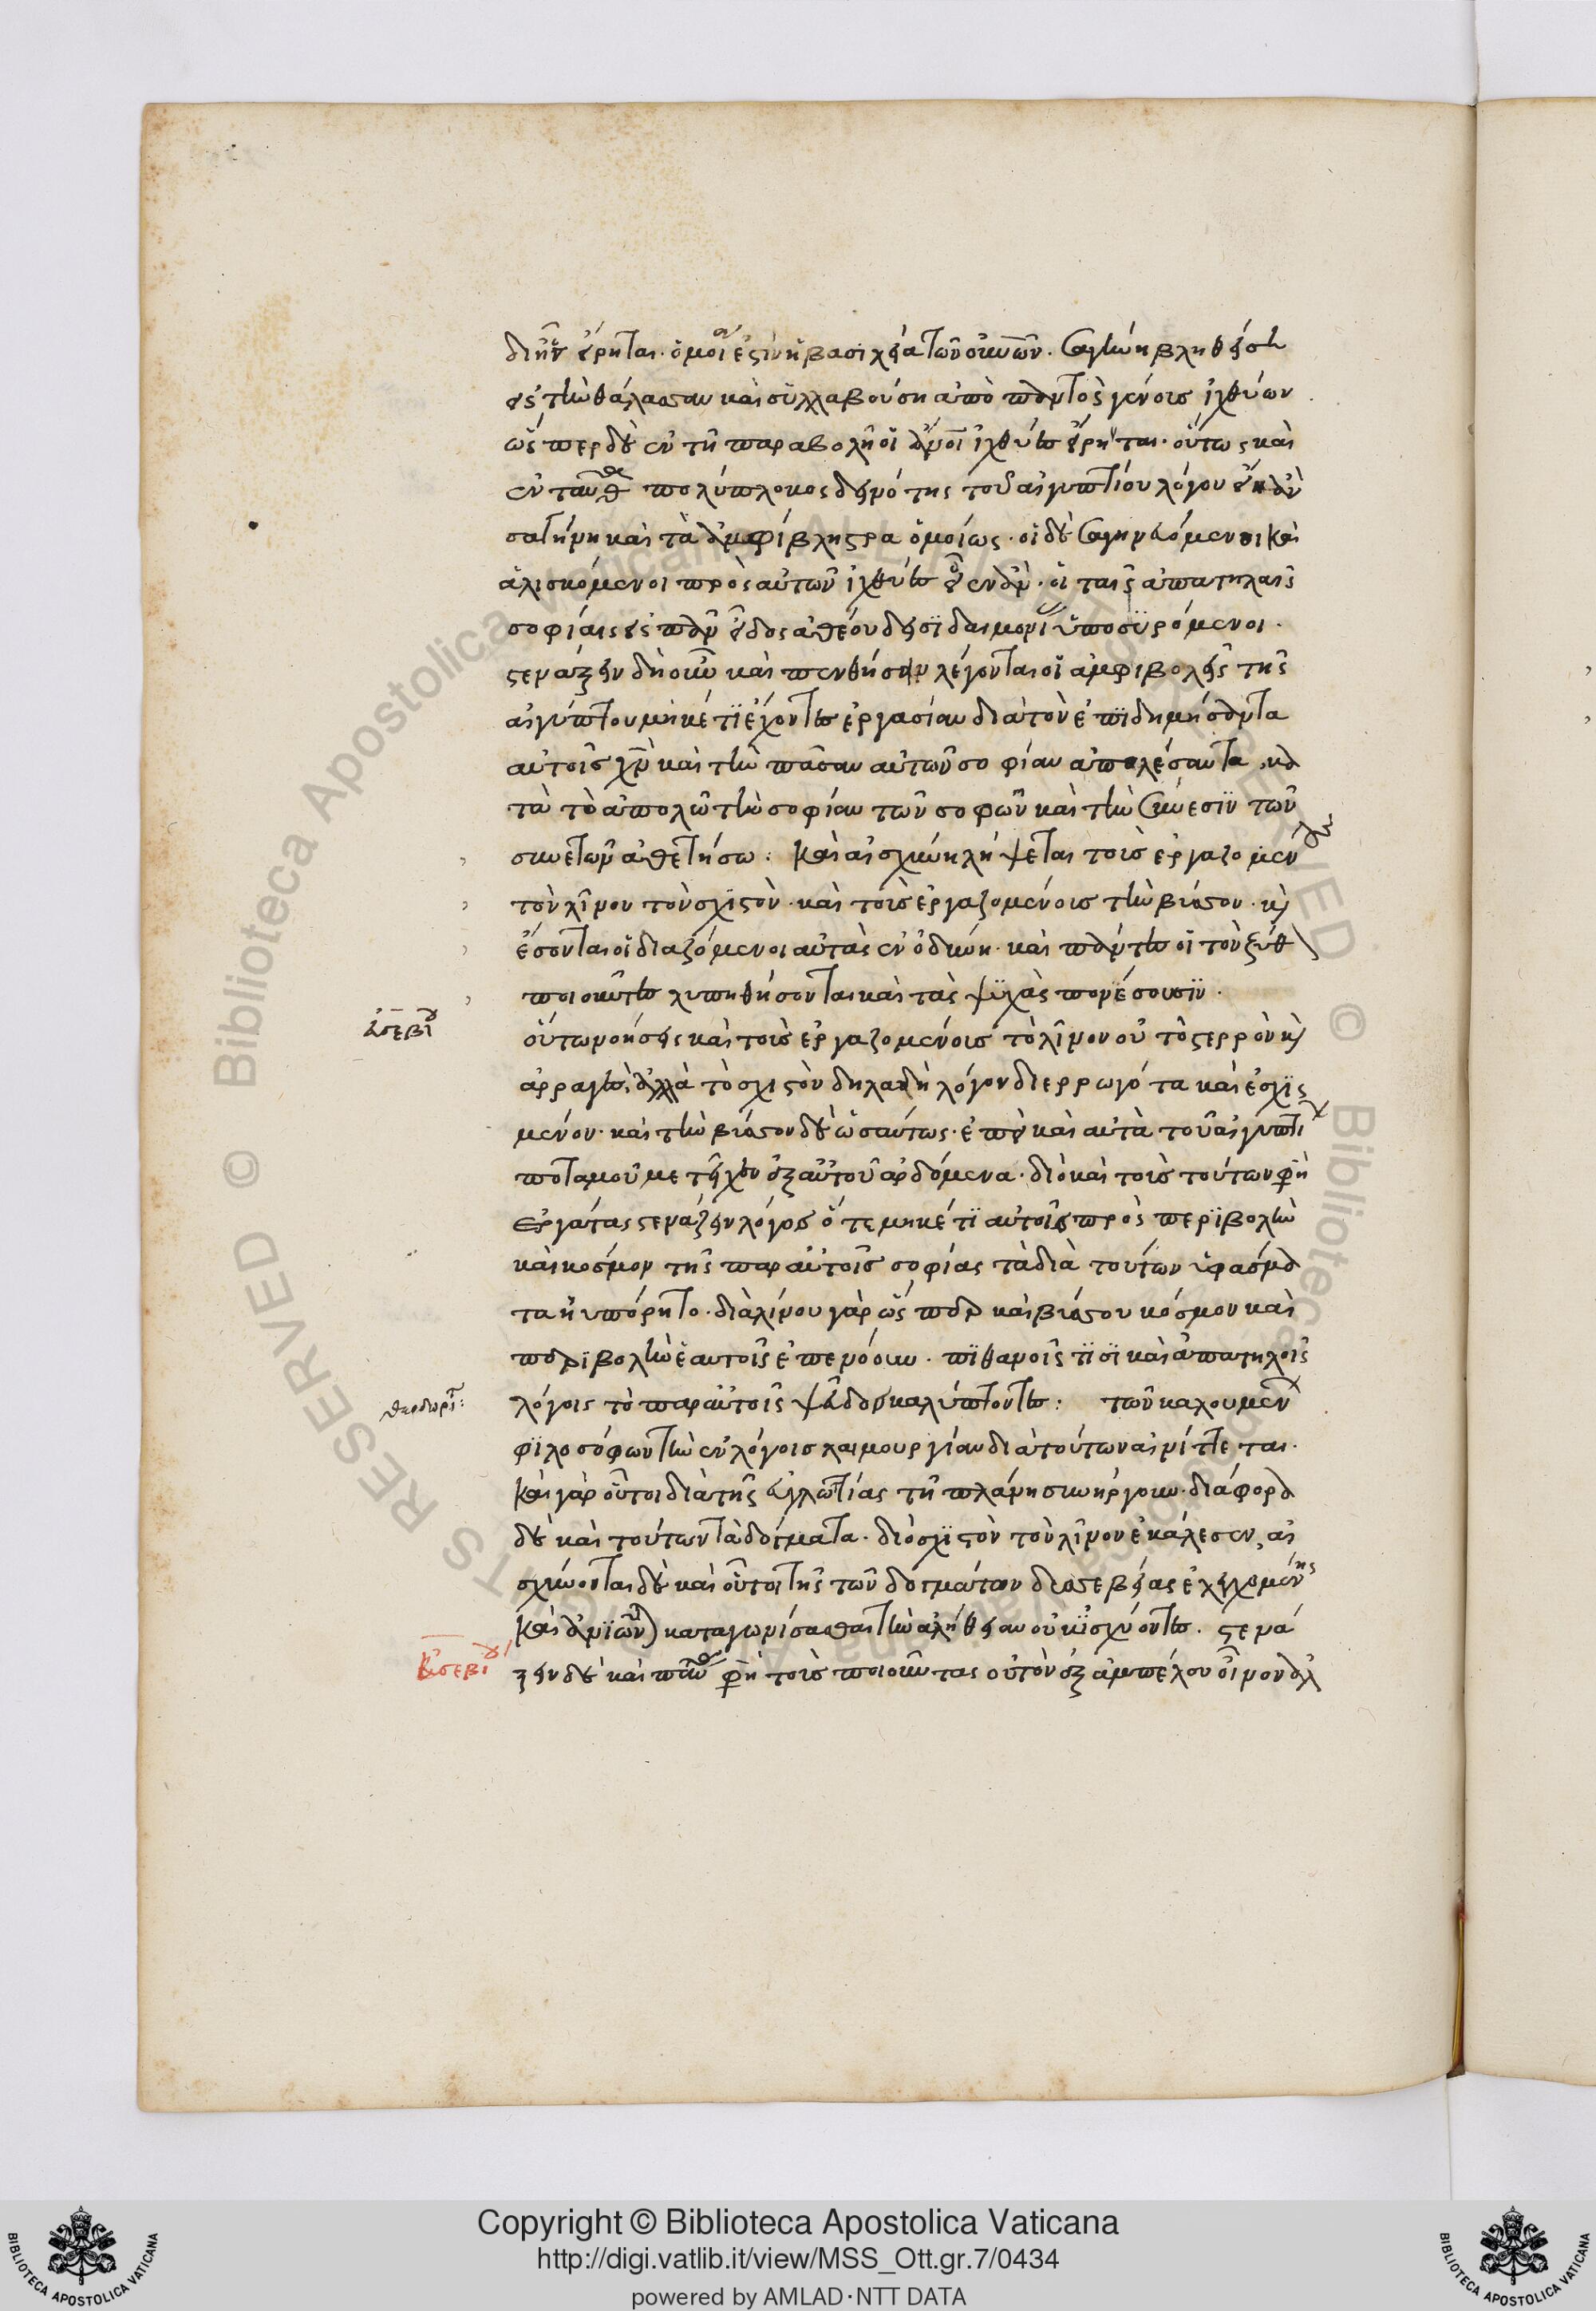 δι' ἣν εἴρηται· ὁμοία ἐστὶν ἡ βασιλεία τῶν οὐρανῶν σαγήνη βληθείσῃ
εἰς τὴν θάλασσαν καὶ συλλαβούσῃ ἀπὸ παντὸς γένους ἰχθύων
ὥσπερ δὲ ἐν τῇ παραβολῇ οἱ ἄνοι ἰχθύες εἴρηνται· οὕτως καὶ
ἐνταῦθα πολύπλοκος δεινότης τοῦ αἰγυπτίου λόγου εἴη ἂν
σαγήνη καὶ τὰ ἀμφίβληστρα ὁμοίως· οἱ δὲ σαγηνευόμενοι καὶ
ἁλισκόμενοι πρὸς αὐτῶν ἰχθύες εἶεν ἂν· οἱ ταῖς ἀπατηλαῖς
σοφίαις εἰς πᾶν εἶδος ἀθέου δεισιδαιμονίας ὑποσυρόμενοι·
στενάξειν δὴ οὖν καὶ πενθήσειν λέγονται οἱ ἀμφιβολεῖς τῆς
αἰγύπτου μηκέτι ἔχοντες ἐργασίαν διὰ τὸν ἐπιδημήσαντα
αὐτοῖς χν καὶ τὴν πᾶσαν αὐτῶν σοφίαν ἀπολέσαντα κα
τὰ τὸ ἀπολῶ τὴν σοφίαν τῶν σοφῶν καὶ τὴν σύνεσιν τῶν
συνετῶν ἀθετήσω: Καὶ αἰσχύνη λήψεται τοὺς ἐργαζομένους
τὸν λῖνον τὸν σχιστὸν· καὶ τοὺς ἐργαζομένους τὴν βύσσον· καὶ
ἔσονται οἱ διαζόμενοι αὐτὰς ἐν ὀδύνη· καὶ πάντες οἱ τὸν ζύθον
ποιοῦντες λυπηθήσονται καὶ τὰς ψυχὰς πονέσουσιν·
Εὐσεβίου
οὕτω νοήσεις καὶ τοὺς ἐργαζομένους τὸ λῖνον οὐ τὸ στερρὸν καὶ
ἀρραγές, ἀλλὰ τὸ σχιστὸν δηλαδὴ λόγον διερρωγότα καὶ ἐσχισ
μένον· καὶ τὴν βύσσον δὲ ὡσαύτως· ἐπεὶ καὶ αὐτὰ τοῦ αἰγυπτίου
ποταμοῦ μετεῖχον ἐξ αὐτοῦ ἀρδόμενα· διὸ καὶ τοὺς τούτων φησὶ
ἐργάτας στενάζειν λόγος ὅτε μηκέτι αὐτοῖς πρὸς περιβολὴν
καὶ κόσμον τῆς παρ αὐτοῖς σοφίας τὰ διὰ τούτων ὑφάσμα
τα ηὐπόρητο· διὰ λίνου γὰρ ὥσπερ καὶ βύσσου κόσμον καὶ
περιβολὴν ἑαυτοῖς ἐπενόουν· πιθανοῖς τισι καὶ ἀπατηλοῖς
Θεοδωρίτου:
λόγοις τὸ παρ αὐτοῖς ψεῦδος καλύπτοντες: τῶν καλουμένων
φιλοσόφων τὴν ἐν λόγοις λινουργίαν διὰ τούτων αἰνίττεται·
Καὶ γὰρ οὗτοι διὰ τῆς εὐγλωττίας τῇ πλάνη συνήργουν· διάφορα
δὲ καὶ τούτων τὰ δόγματα· διὸ σχιστὸν τὸν λῖνον ἐκάλεσεν, αἰ
σχύνονται δὲ καὶ οὗτοι τῆς τῶν δογμάτων δυσεβείας ἐλεγχομένης
καὶ ἀνταγωνίσασθαι τὴν ἀλήθειαν οὐκ ἰσχύοντες. στενά
Εὐσεβίου
ζειν δὲ καὶ πενθεῖν φησὶ τοὺς ποιοῦντας οὐ τὸν ἐξ ἀμπέλου οἶνον ἀλ
Copyright © Biblioteca Apostolica Vaticana
http://digi.vatlib.it/view/MSS_Ott.gr.7/0434
powered by AMLAD·NTT DATA
BIBLIOTECA APOSTOLICA VATICANA
BIBLIOTECA APOSTOLICA VATICANA